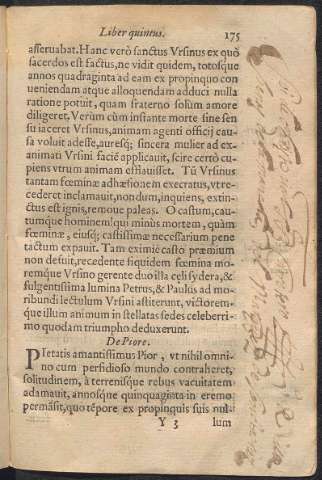 Liber quintus. 175
asseruabat. Hanc verò sanctus Vrsinus ex quò
sacerdos est factus, ne vidit quidem, totosque
annos quadraginta ad eam ex propinquo con
ueniendam atque alloquendam adduci nulla
ratione potuit, quam fraterno solùm amore
diligeret. Verùm cùm instante morte sine sen
su iaceret Vrsinus, animam agenti officij cau-
sa voluit adesse, auresq; sincera mulier ad ex-
animati Vrsini faciē applicauit, scire certò cu-
piens vtrum animam efflauisset. Tū Vrsinus
tantam fœminæ adhæsionem execratus, vt re-
cederet inclamauit, nondum, inquiens, extin-
ctus est ignis, remoue paleas. O castum, cau-
tumque hominem! qui minùs mortem, quàm
fœminæ, eiusq; castissimæ necessarium pene
tactum expauit. Tam eximiè casto præmium
non defuit, recedente siquidem fœmina mo-
remque Vrsino gerente duo illa cęli sydera, &
fulgentissima lumina Petrus, & Paulus ad mo-
ribundi lectulum Vrsini astiterunt, victorem-
que illum animum in stellatas sedes celeberri-
mo quodam triumpho deduxerunt.
De Piore.
PIetatis amantissimus Pior, vt nihil omni-
no cum perfidioso mundo contraheret,
solitudinem, à terrenisque rebus vacuitatem
adamauit, annosque quinquaginta in eremo
permāsit, quo tēpore ex propinquis suis nul-
Y 3 lum